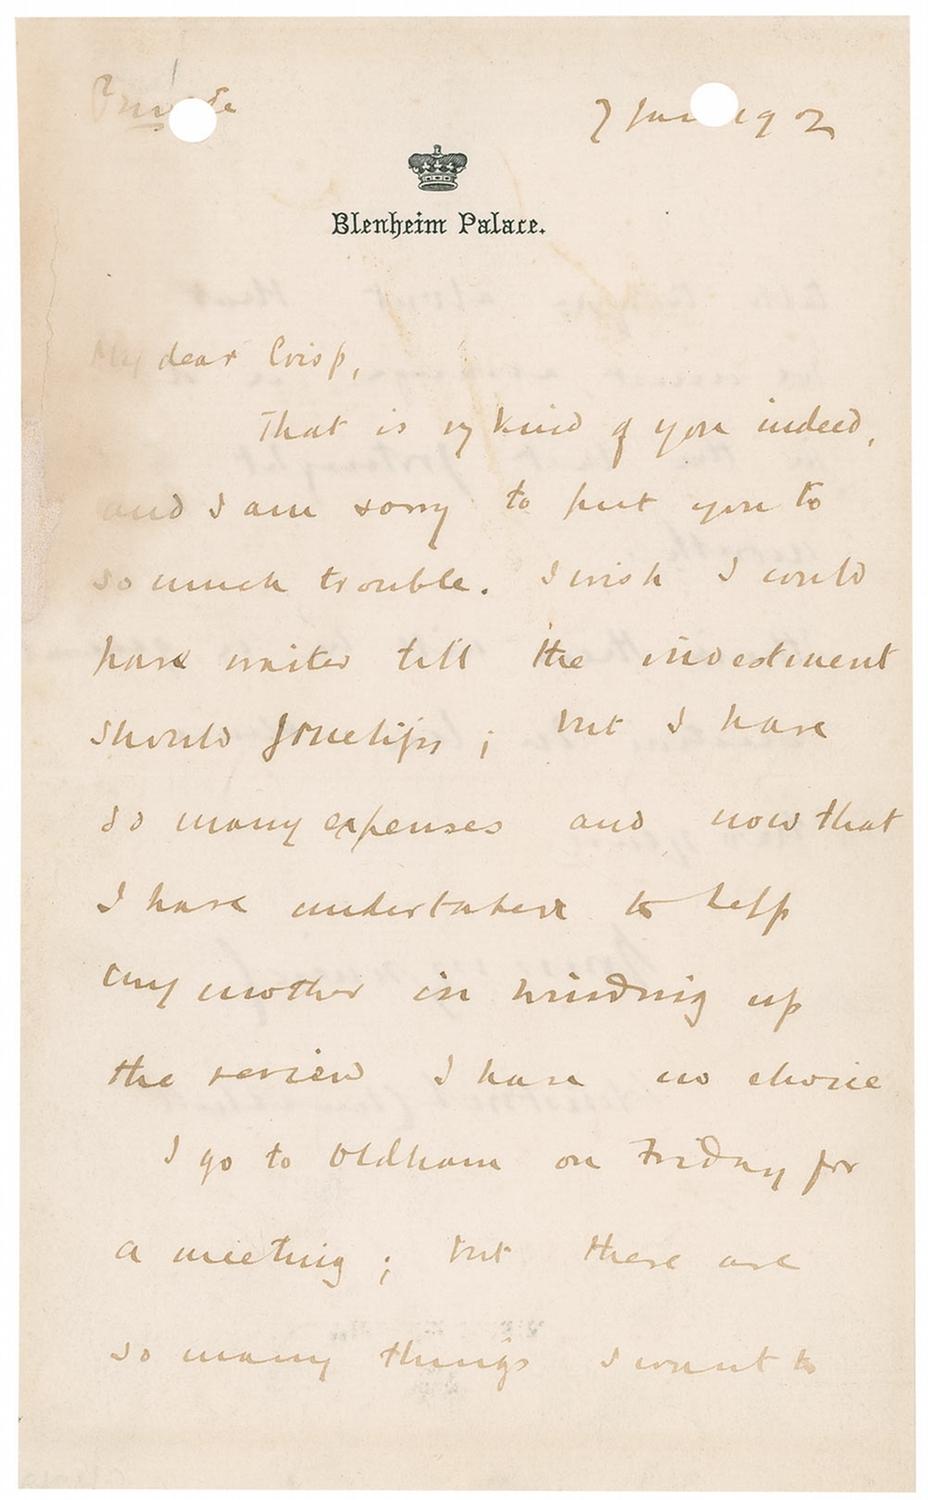 Private
7 Jan 1902
Blenheim Palace.
My dear Crisp,
That is vy kind of you indeed,
and I am sorry to put you to
so much trouble. I wish I could
have waited till the investment
should fructify; but I have
so many expenses and now that
I have undertaken to help
my mother in winding up
the review I have no choice
I go to Oldham on Friday for
a meeting; but there are
so many things I want to